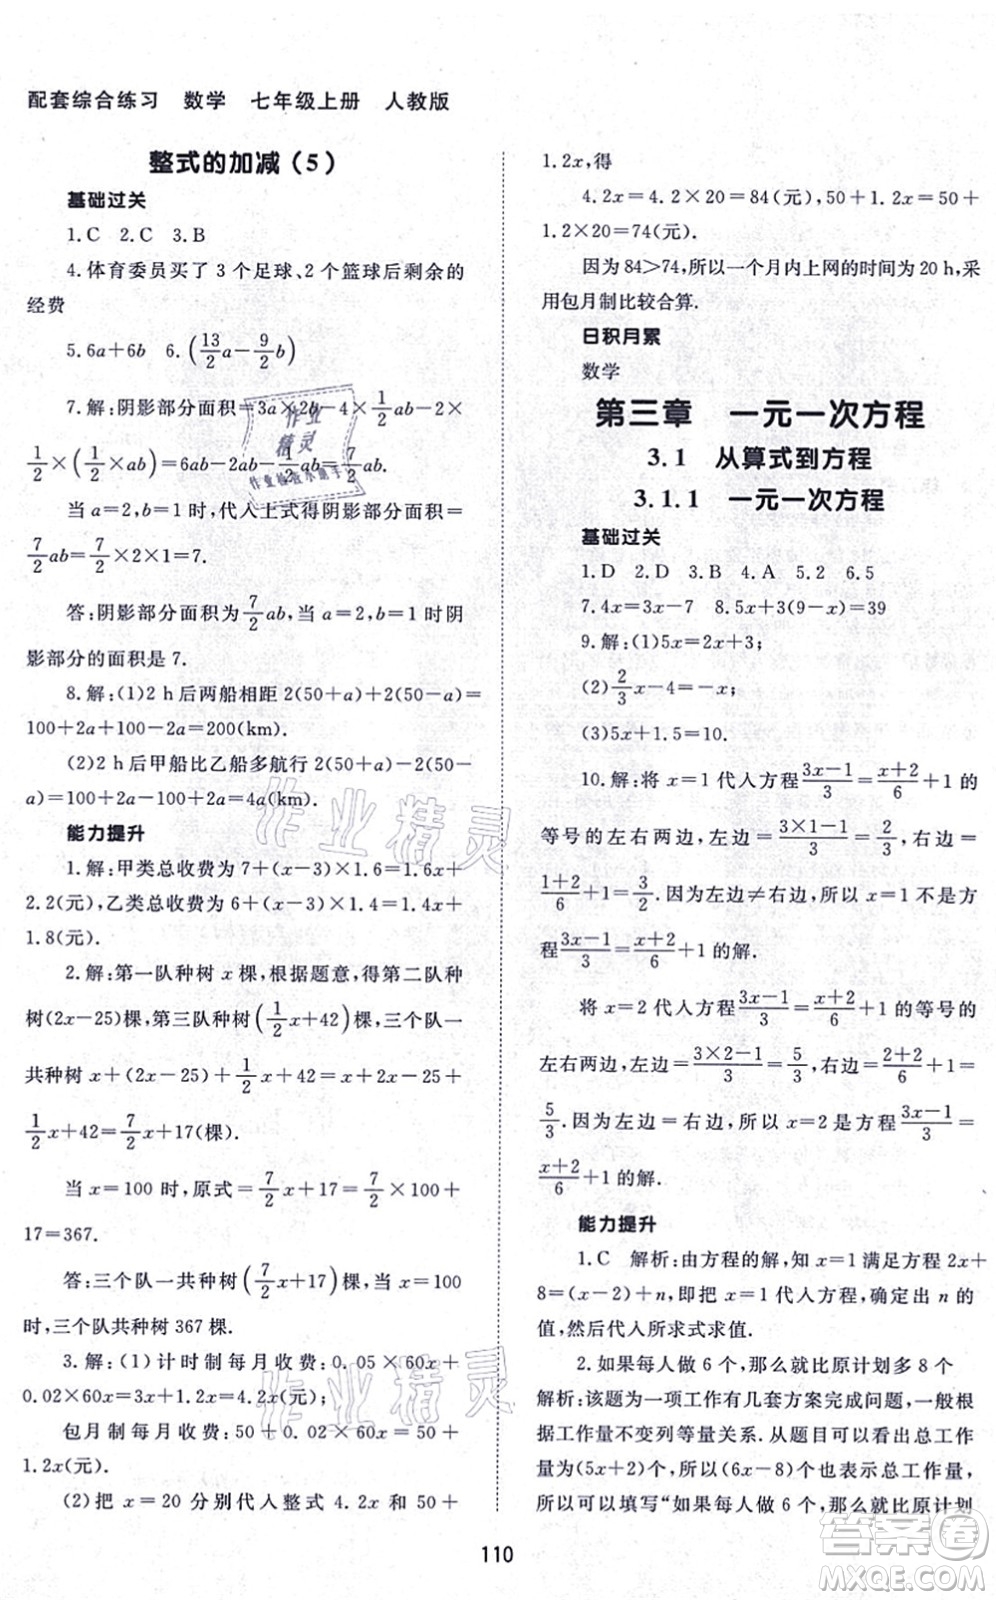 配套综合练习　数学　七年级上册　人教版
整式的加减(5)
基础过关
1.C　2.C　3.B
4.体育委员买了 3 个足球、2 个篮球后剩余的
经费
5.6a+6b　6.(13/2 a-9/2 b)
7.解:阴影部分面积=3a×2b-4×1/2 ab-2×
1/2×(1/2 a×b)=6ab-2ab-1/2 ab=7/2 ab.
当 a=2,b=1 时,代入上式得阴影部分面积=
7/2 ab=7/2×2×1=7.
答:阴影部分面积为7/2 ab,当 a=2,b=1 时阴
影部分的面积是 7.
8.解:(1)2 h后两船相距 2(50+a)+2(50-a)=
100+2a+100-2a=200(km).
(2)2 h后甲船比乙船多航行 2(50+a)-2(50-
a)=100+2a-100+2a=4a(km).
能力提升
1.解:甲类总收费为 7+(x-3)×1.6=1.6x+
2.2(元),乙类总收费为 6+(x-3)×1.4=1.4x+
1.8(元).
2.解:第一队种树 x 棵,根据题意,得第二队种
树(2x-25)棵,第三队种树(1/2 x+42)棵,三个队一
共种树 x+(2x-25)+1/2 x+42=x+2x-25+
1/2 x+42=7/2 x+17(棵).
当 x=100 时,原式=7/2 x+17=7/2×100+
17=367.
答:三个队一共种树(7/2 x+17)棵,当 x=100
时,三个队共种树 367 棵.
3.解:(1)计时制每月收费:0.05×60x+
0.02×60x=3x+1.2x=4.2x(元);
包月制每月收费:50+0.02×60x=50+
1.2x(元).
(2)把 x=20 分别代入整式 4.2x 和 50+
1.2x,得
4.2x=4.2×20=84(元),50+1.2x=50+
1.2×20=74(元).
因为 84>74,所以一个月内上网的时间为 20 h,采
用包月制比较合算.
日积月累
数学
第三章　一元一次方程
3.1　从算式到方程
3.1.1　一元一次方程
基础过关
1.D　2.D　3.B　4.A　5.2　6.5
7.4x=3x-7　8.5x+3(9-x)=39
9.解:(1)5x=2x+3;
(2)2/3 x-4=-x;
(3)5x+1.5=10.
10.解:将 x=1 代入方程(3x-1)/3=(x+2)/6+1 的
等号的左右两边,左边=(3×1-1)/3=2/3,右边=
(1+2)/6+1=3/2.因为左边≠右边,所以 x=1 不是方
程(3x-1)/3=(x+2)/6+1 的解.
将 x=2 代入方程(3x-1)/3=(x+2)/6+1 的等号的
左右两边,左边=(3×2-1)/3=5/3,右边=(2+2)/6+1=
5/3.因为左边=右边,所以 x=2 是方程(3x-1)/3=
(x+2)/6+1 的解.
能力提升
1.C　解析:由方程的解,知 x=1 满足方程 2x+
8=(x-2)+n,即把 x=1 代入方程,确定出 n 的
值,然后代入所求式求值.
2.如果每人做 6 个,那么就比原计划多 8 个
解析:该题为一项工作有几套方案完成问题,一般根
据工作量不变列等量关系.从题目可以看出总工作
量为(5x+2)个,而(6x-8)个也表示总工作量,
所以可以填写“如果每人做 6 个,那么就比原计划
110
作业精灵
作业检查小助手
作业精灵
作业精灵
答案圈
MXQE.COM